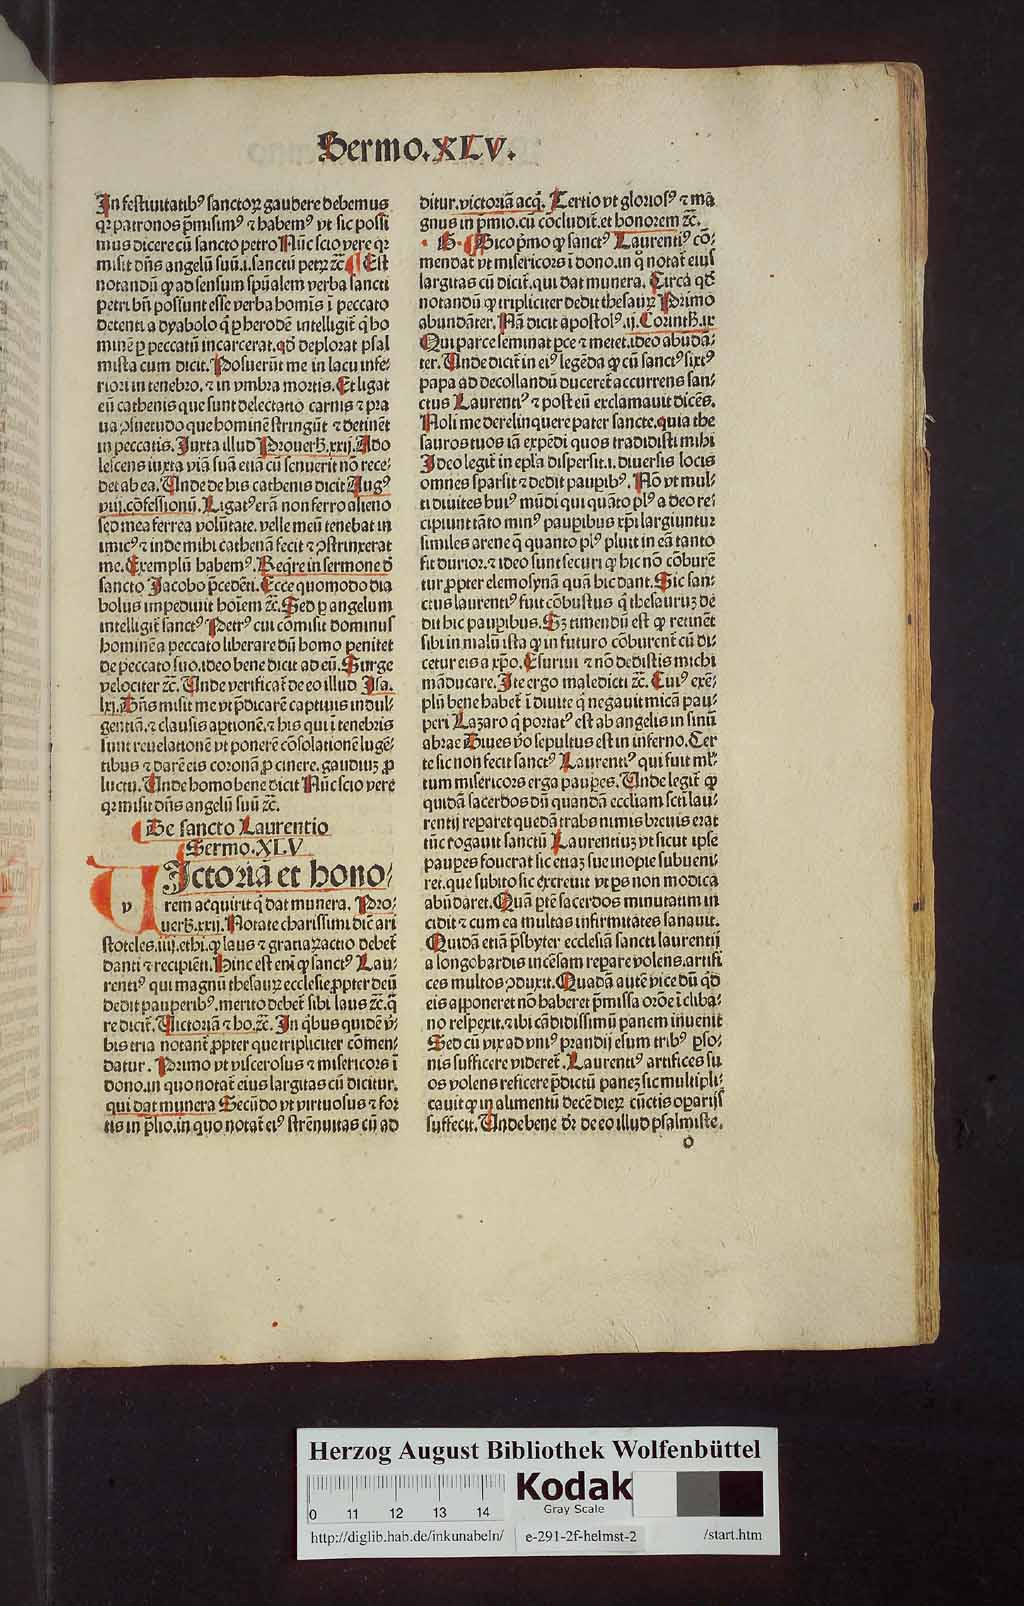 Sermo.XLV.
In festiuitatibꝰ sanctoꝝ gaudere debemus
qꝛ patronos p̄misimꝰ ⁊ habemꝰ vt sic possi
mus dicere cū sancto petro Nūc scio vere qꝛ
misit dn̄s angelū suū.i.sanctū petꝝ ⁊c̄ Est
notandū ꝙ ad sensum spūalem verba sancti
petri bn̄ possunt esse verba homīs ī peccato
detenti a dyabolo q̄ ꝑ herodē intelligit̄ q̄ ho
minē ꝑ peccatū incarcerat.qd̄ deplorat psal
mista cum dicit.Posuerūt me in lacu infe⸗
riori in tenebro.⁊ in vmbra mortis.Et ligat
eū cathenis que sunt delectatio carnis ⁊ pra
ua ꝯsuetudo que hominē stringūt ⁊ detinēt
in peccatis.Iuxta illud Prouerb̄.xxij.Ado
lescens iuxta viā suā etiā cū senuerit nō rece⸗
det ab ea.Unde de his cathenis dicit Augꝰ
viij.cōfessionū.Ligatꝰ erā non ferro alieno
sed mea ferrea volūtate.velle meū tenebat in
imicꝰ ⁊ inde mihi cathenā fecit ⁊ ꝯstrinxerat
me.Exemplū habemꝰ.Req̄re in sermone d̄
sancto Jacobo p̄cedēti.Ecce quomodo dia
bolus impediuit hoīem ⁊c̄.Sed ꝑ angelum
intelligit̄ sanctꝰ Petrꝰ cui comisit dominus
hominē a peccato liberare dū homo penitet
de peccato suo.ideo bene dicit ad eū.Surge
velociter ⁊c̄.Unde verificat̄ de eo illud Isa.
lxj.Dn̄s misit me vt p̄dicarē captiuis indul⸗
gentiā.⁊ clausis aptionē.⁊ his qui ī tenebris
sunt reuelationē vt ponerē cōsolationē lugē⸗
tibus ⁊ darē eis coronā ꝓ cinere.gaudiuꝫ ꝓ
luctu.Unde homo bene dicit Nūc scio vere
qꝛ misit dn̄s angelū suū ⁊c̄.
De sancto Laurentio
Sermo.XLV
v Ictoriā et hono⸗
rem acquirit q̄ dat munera. Pro⸗
uerb̄.xxij.Notate charissimi dic̄ ari
stoteles.iiij.ethi.ꝙ laus ⁊ gratiaꝝactio debet̄
danti ⁊ recipiēti.Hinc est eni ꝙ sanctꝰ Lau⸗
rentiꝰ qui magnū thesauꝝ ecclesie ꝓpter deū
dedit pauperibꝰ.merito debet̄ sibi laus ⁊c̄.q̄
re dicit̄.Uictoriā ⁊ ho.⁊c̄.In q̄bus quidē v̄⸗
bis tria notant̄ ꝓpter que tripliciter cōmen⸗
datur. Primo vt viscerosus ⁊ misericors ī
dono.in quo notat̄ eius largitas cū dicitur.
qui dat munera Secūdo vt virtuosus ⁊ for
tis in p̄lio.in quo notat̄ eiꝰ strēnuitas cū ad
ditur.victoriā acq̄. Tertio vt gloriosꝰ ⁊ mā
gnus in p̄mio.cū cōcludit̄.et honorem ⁊c̄.
Dico p̄mo ꝙ sanctꝰ Laurentiꝰ cō⸗
mendat̄ vt misericors ī dono.in q̄ notat̄ eius
largitas cū dicit̄.qui dat munera. Circa qd̄
notandū ꝙ tripliciter dedit thesauꝝ Primo
abundāter. Nā dicit apostolꝰ.ij.Corinth̄.ix
Qui parce seminat ꝑce ⁊ metet.ideo abūdā⸗
ter. Unde dicit̄ in eiꝰ legēda ꝙ cū sanctꝰ sixtꝰ
papa ad decollandū duceret̄ accurrens san⸗
ctus Laurentiꝰ ⁊ post eū exclamauit dicēs.
Noli me derelinquere pater sancte.quia the
sauros tuos iā expēdi quos tradidisti mihi
Ideo legit̄ in epl̄a dispersit.i.diuersis locis
omnes sparsit ⁊ dedit pauꝑibꝰ. Nō vt mul⸗
ti diuites huiꝰ mūdi qui quāto plꝰ a deo re⸗
cipiunt tāto minꝰ pauꝑibus xp̄i largiuntur
similes arene q̄ quanto plꝰ pluit in eā tanto
fit durior.⁊ ideo sunt securi ꝙ hic nō cōburē
tur ꝓpter elemosynā quā hic dant.Sic san⸗
ctus laurentiꝰ fuit cōbustus q̄ thesauruꝫ de
dit hic pauꝑibus. Sꝫ timendū est ꝙ retinēt
sibi in malū ista ꝙ in futuro cōburent̄ cū di⸗
cetur eis a xp̄o. Esuriui ⁊ nō dedistis michi
māducare.Ite ergo maledicti ⁊c̄. Cuiꝰ exē⸗
plū bene habet̄ ī diuite q̄ negauit micā pau⸗
peri Lazaro q̄ portatꝰ est ab angelis in sinū
abrae Diues v̄o sepultus est in inferno.Cer
te sic non fecit sanctꝰ Laurentiꝰ qui fuit ml̄⸗
tum misericors erga pauꝑes. Unde legit̄ ꝙ
quidā sacerdos dū quandā eccl̄iam scti lau⸗
rentij reparet quedā trabs nimis breuis erat
tūc rogauit sanctū Laurentiuꝫ vt sicut ipse
pauꝑes fouerat sic etiaꝫ sue inopie subueni⸗
ret.que subito sic excreuit vt ꝑs non modica
abūdaret. Quā ꝑtē sacerdos minutatim in
cidit ⁊ cum ea multas infirmitates sanauit.
Quidā etiā p̄sbyter ecclesiā sancti laurentij
a longobardis incēsam repare volens.artifi
ces multos ꝯduxit.Quadā autē vice dū q̄d
eis apponeret nō haberet p̄missa orōe ī cliba⸗
no respexit.⁊ ibi cādidissimū panem inuenit
Sed cū vix ad vniꝰ prandij esum tribꝰ ꝑso⸗
nis sufficere videret̄.Laurentiꝰ artifices su
os volens reficere p̄dictū paneꝫ sic multipli⸗
cauit ꝙ in alimentū decē dieꝝ cūctis oꝑarijs
suffecit.Unde bene dr̄ de eo illud psalmiste.
o
Herzog August Bibliothek Wolfenbüttel
0 11 12 13 14
Kodak
Gray Scale
http://diglib.hab.de/inkunabeln/ e-291-2f-helmst-2 /start.htm